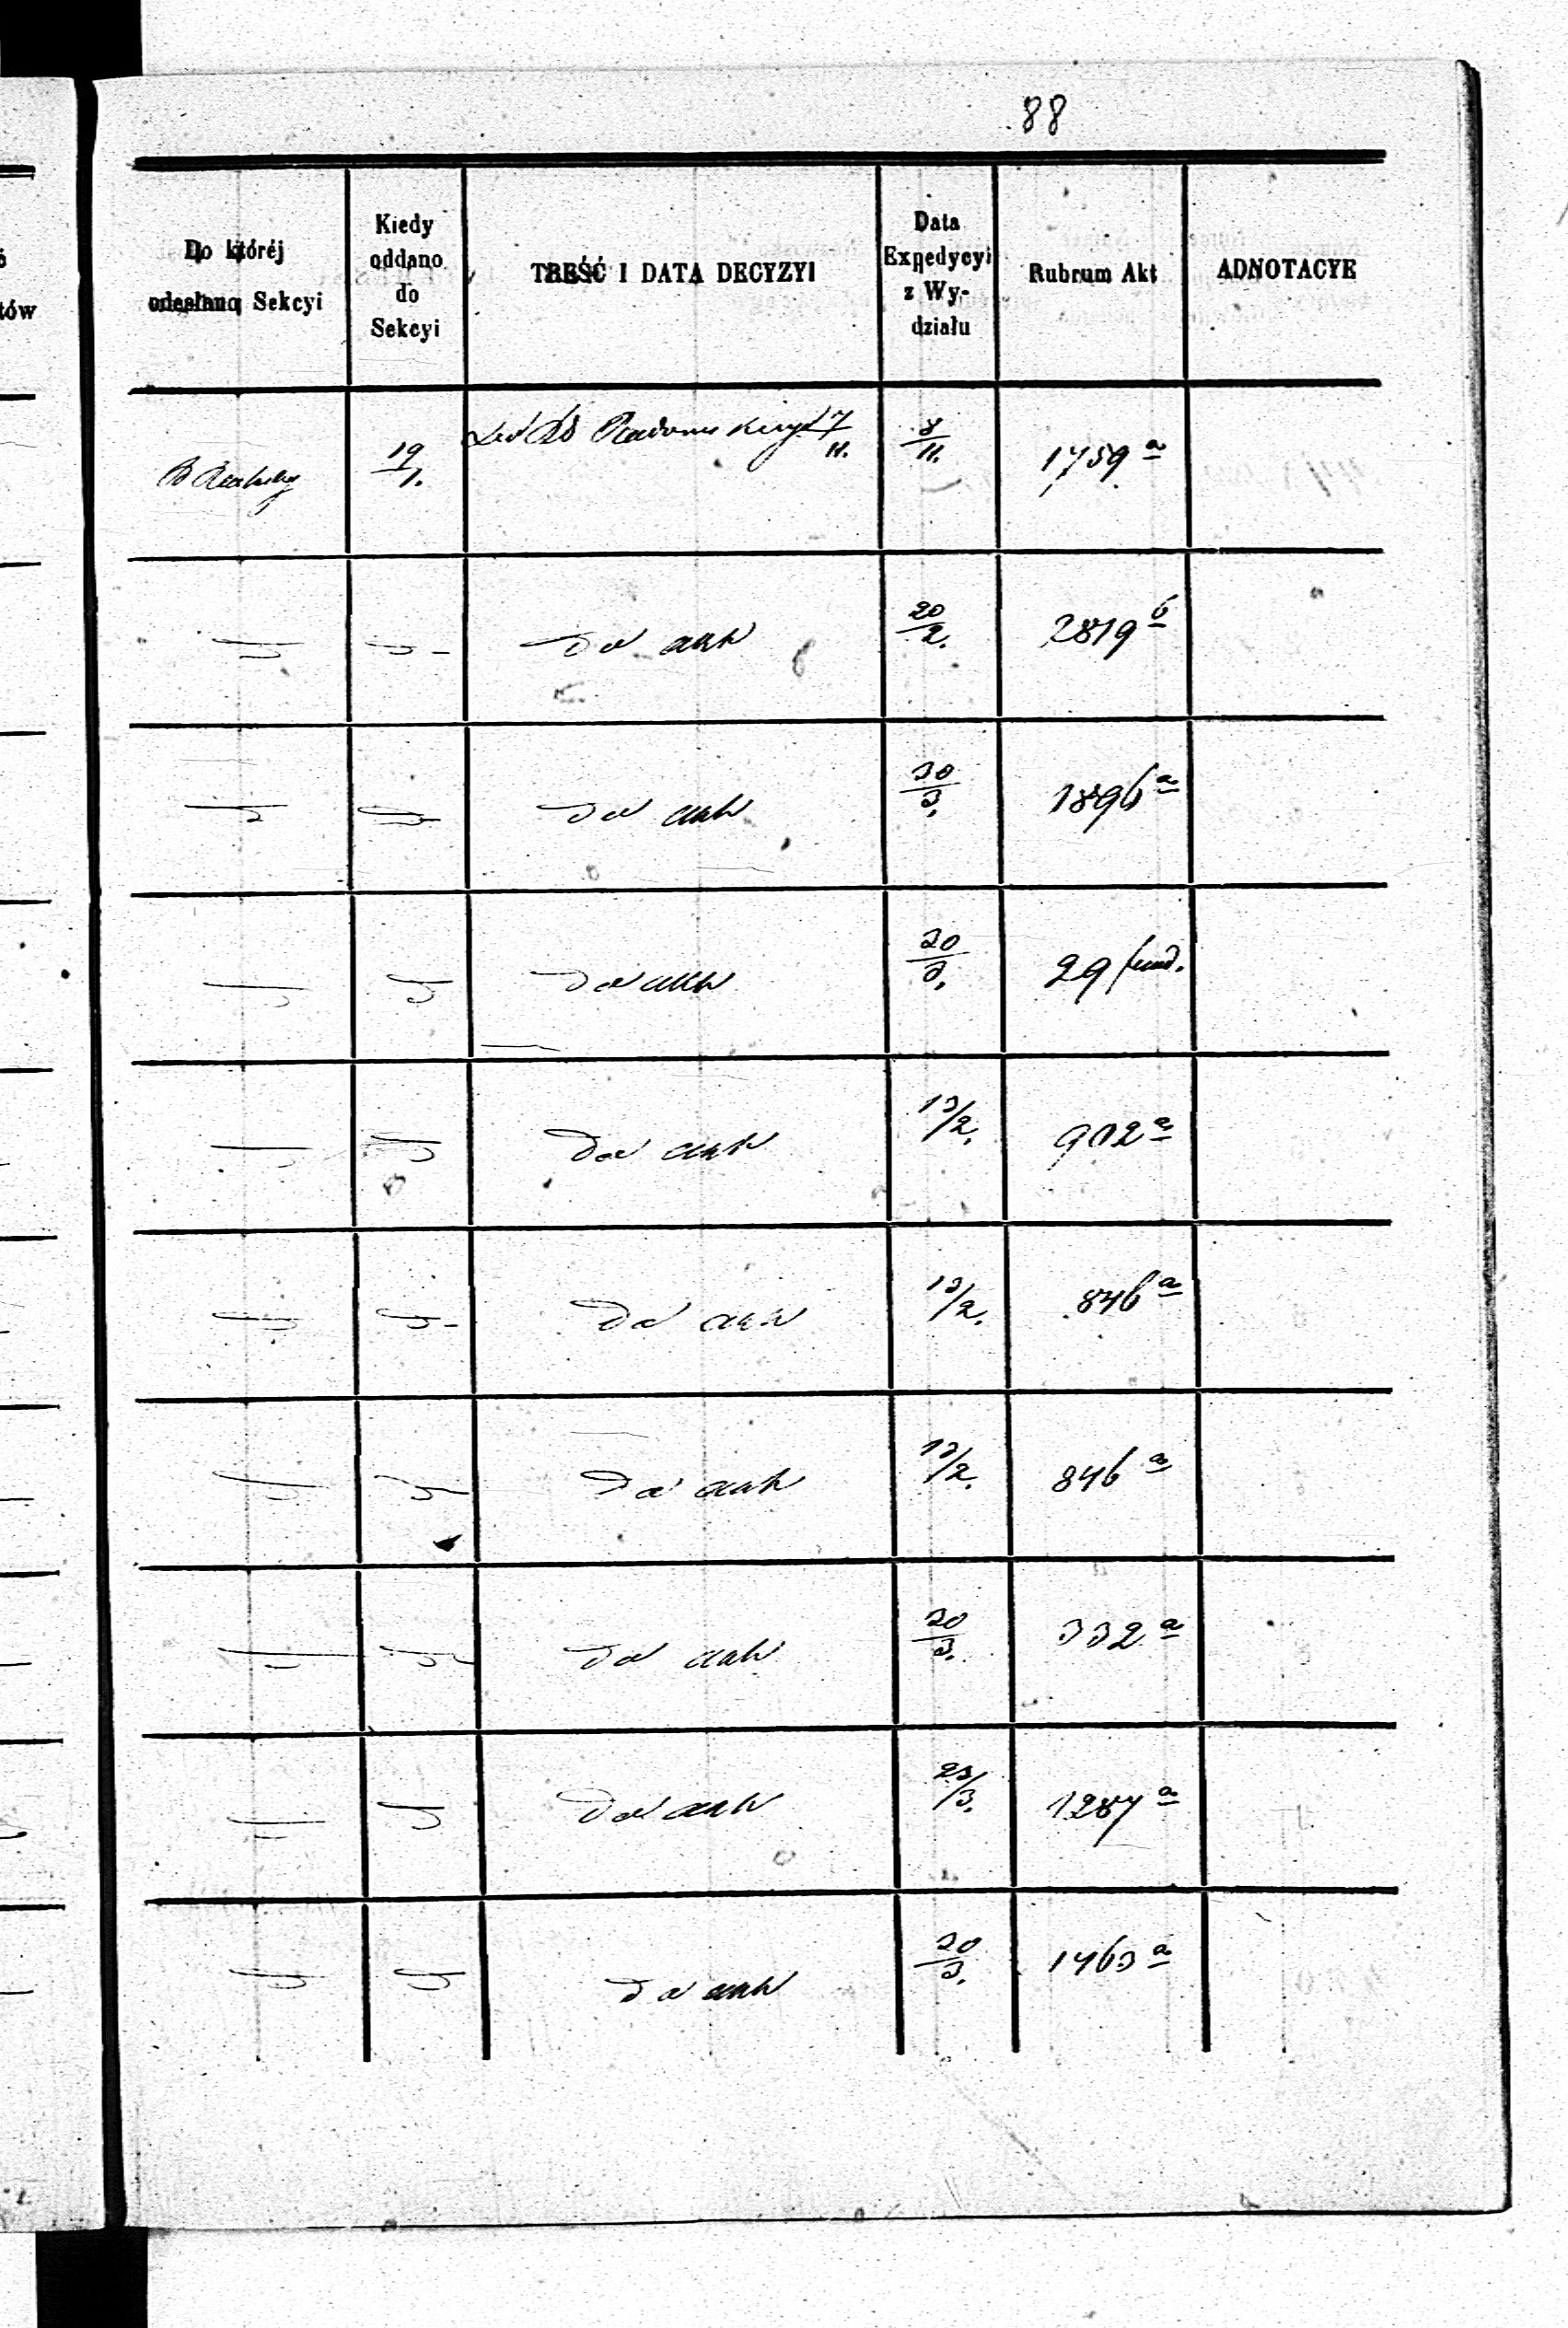 88
Do któréj odesłano Sekcyi | Kiedy oddano do Sekcyi | TREŚĆ I DATA DECYZYI | Data Expedycyi z Wydziału | Rubrum Akt | ADNOTACYE
19/1. | 7/11. | 8/11. | 1759 a
do akt | 20/2. | 2819 b
do akt | 30/3. | 1896 a
do akt | 30/3. | 29 fund.
do akt | 13/2. | 902 a
do akt | 13/2. | 846 a
do akt | 13/2. | 846 a
do akt | 30/3. | 332 a
do akt | 23/3. | 1287 a
do akt | 30/3. | 1463 a